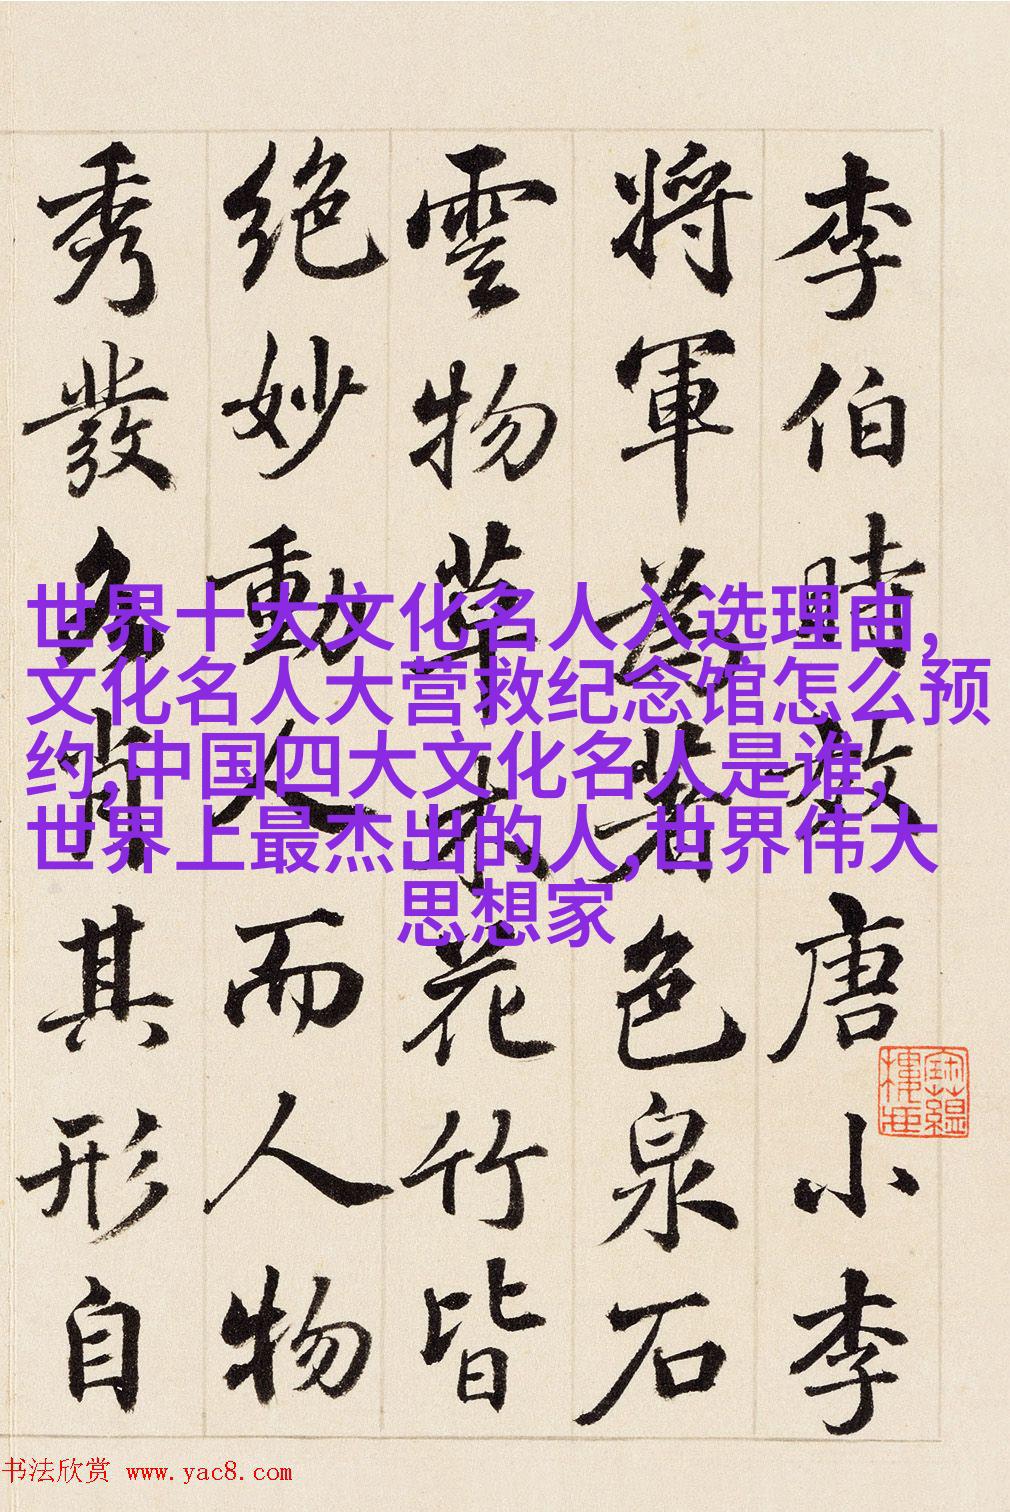 李伯時效唐小李
將軍為著色泉石
雲物草木花竹皆
絕妙動人而人物
秀發各肖其形自
世界十大文化名人入选理由,
文化名人大营救纪念馆怎么预
约,中国四大文化名人是谁,
世界上最杰出的人,世界伟大
思想家
书法欣赏 www.yac8.com